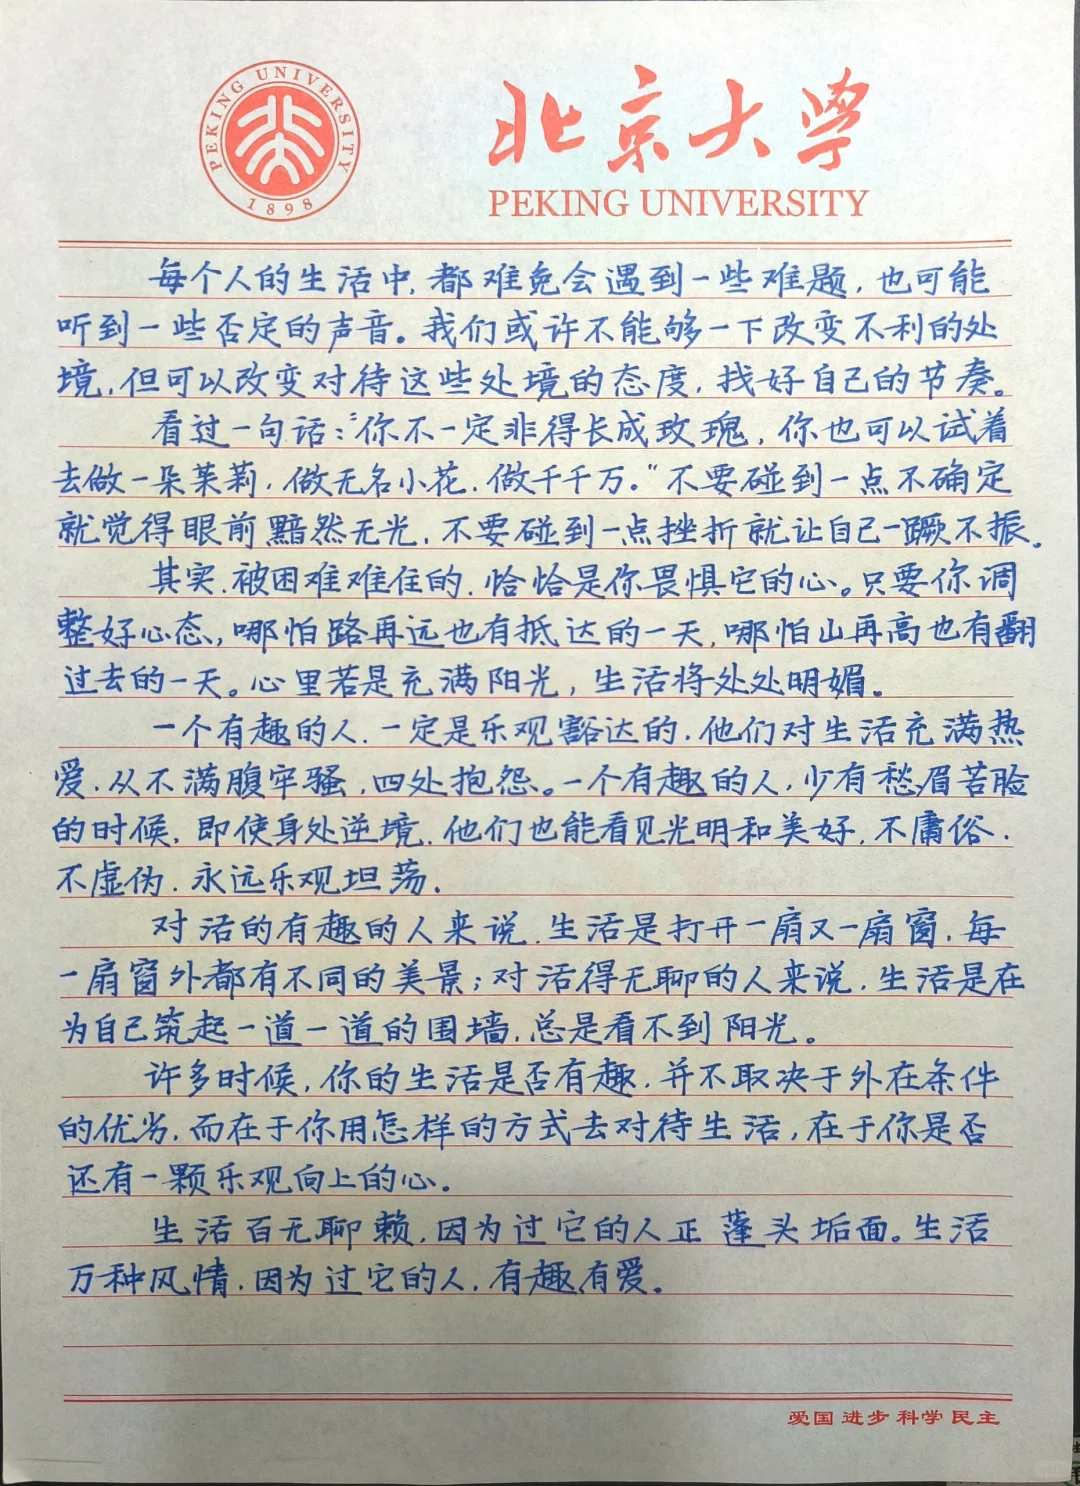 PEKING UNIVERSITY
1898
北京大学
PEKING UNIVERSITY
每个人的生活中,都难免会遇到一些难题,也可能
听到一些否定的声音。我们或许不能够一下改变不利的处
境,但可以改变对待这些处境的态度,找好自己的节奏。
看过一句话:“你不一定非得长成玫瑰,你也可以试着
去做一朵茉莉,做无名小花,做千千万。”不要碰到一点不确定
就觉得眼前黯然无光,不要碰到一点挫折就让自己一蹶不振。
其实,被困难难住的,恰恰是你畏惧它的心。只要你调
整好心态,哪怕路再远也有抵达的一天,哪怕山再高也有翻
过去的一天。心里若是充满阳光,生活将处处明媚。
一个有趣的人,一定是乐观豁达的,他们对生活充满热
爱,从不满腹牢骚,四处抱怨。一个有趣的人,少有愁眉苦脸
的时候,即使身处逆境,他们也能看见光明和美好,不庸俗,
不虚伪,永远乐观坦荡.
对活的有趣的人来说,生活是打开一扇又一扇窗,每
一扇窗外都有不同的美景;对活得无聊的人来说,生活是在
为自己筑起一道一道的围墙,总是看不到阳光。
许多时候,你的生活是否有趣,并不取决于外在条件
的优劣,而在于你用怎样的方式去对待生活,在于你是否
还有一颗乐观向上的心。
生活百无聊赖,因为过它的人正蓬头垢面。生活
万种风情,因为过它的人,有趣有爱。
爱国 进步 科学 民主